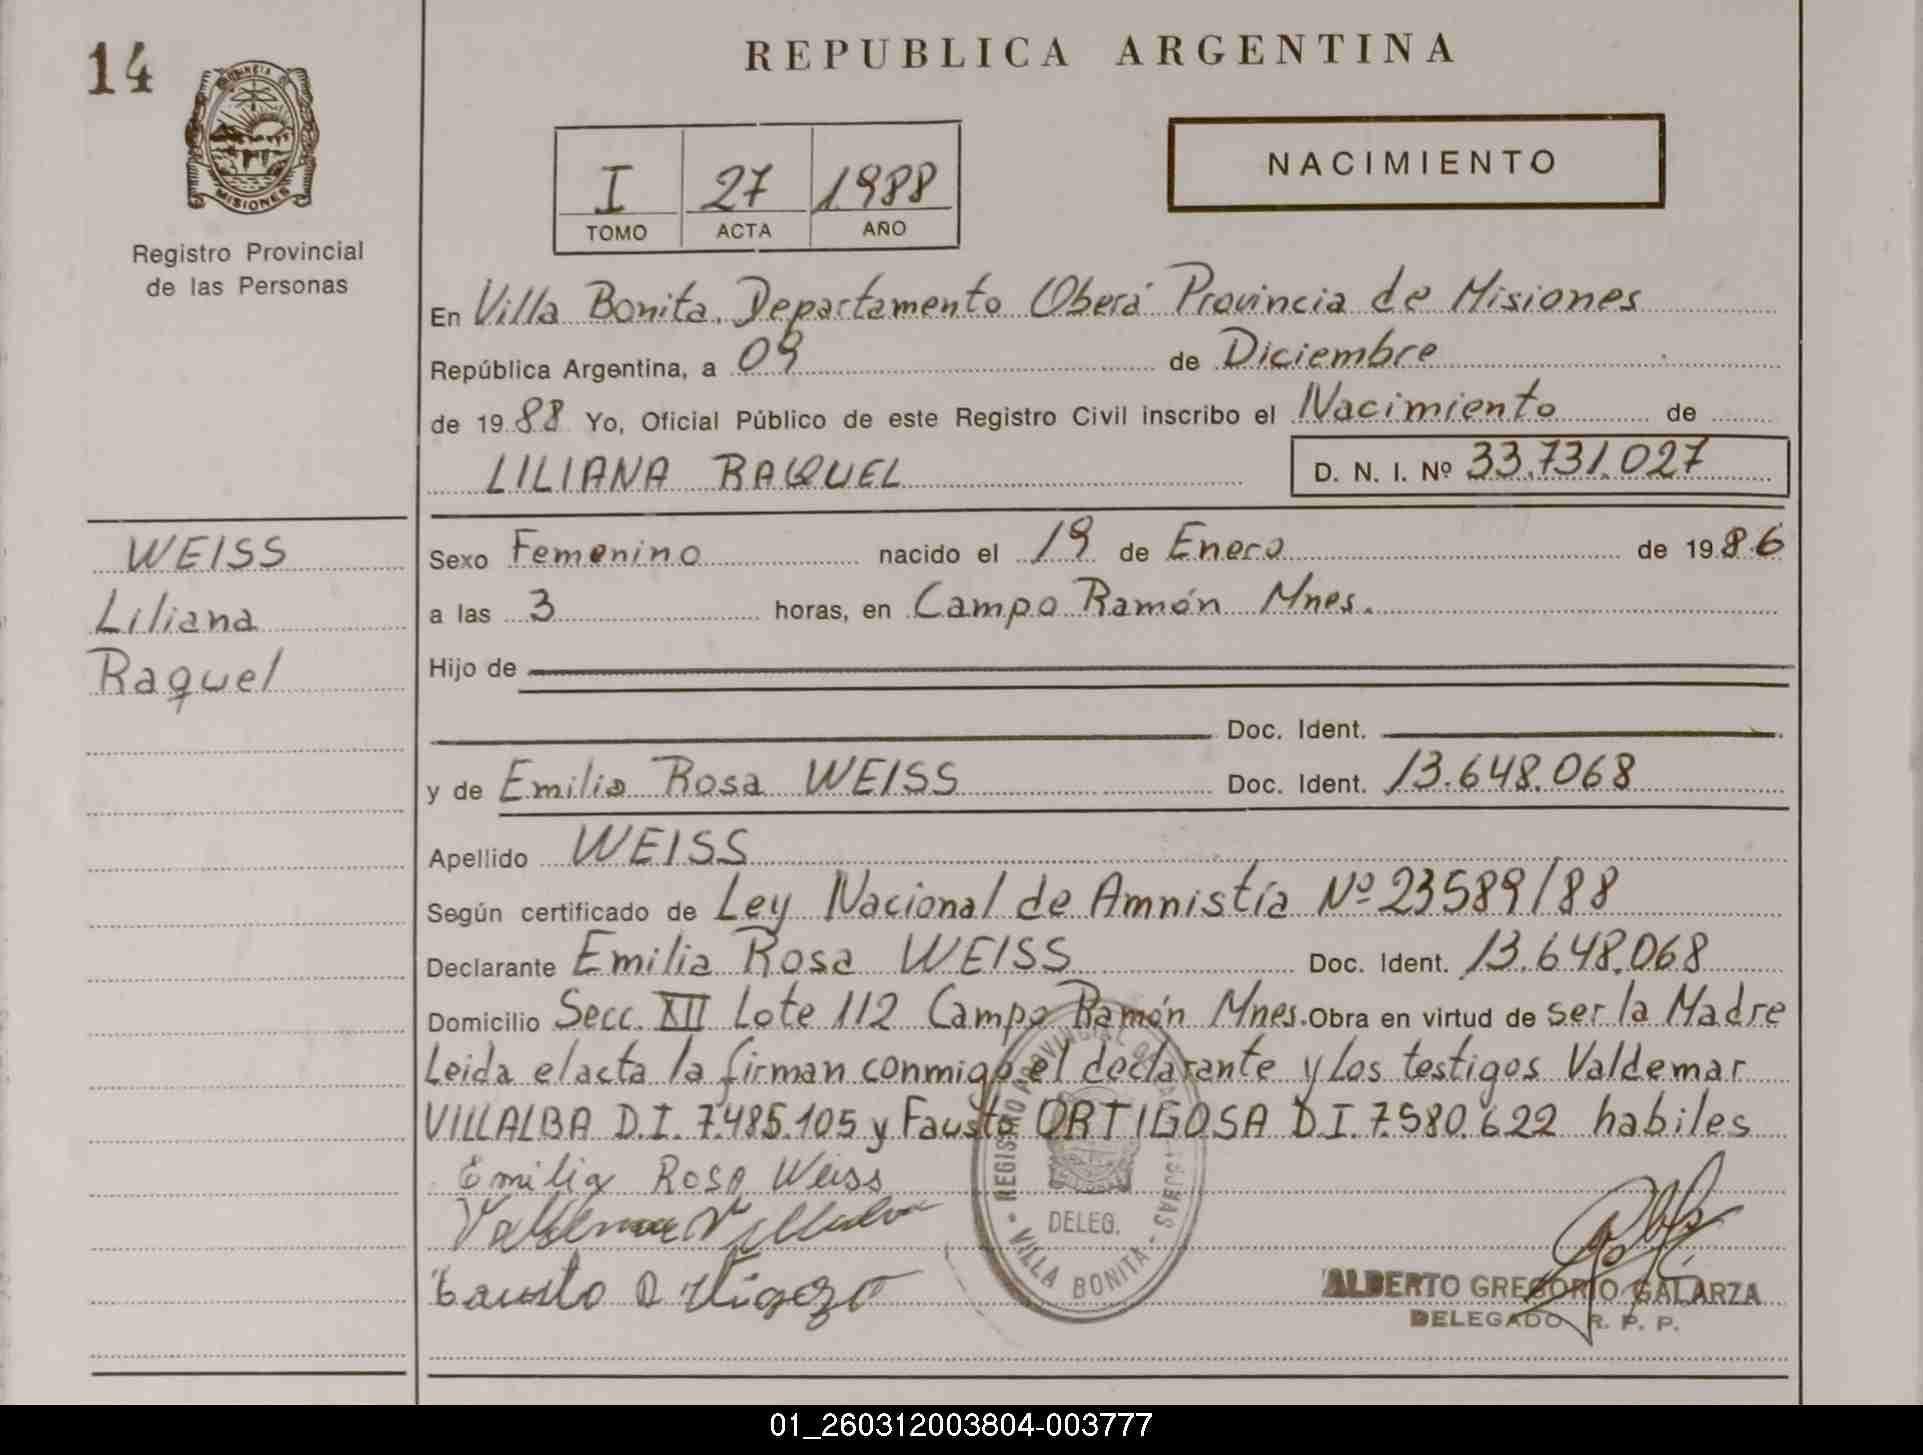 14
REPUBLICA ARGENTINA
PROVINCIA DE
MISIONES
Registro Provincial
de las Personas
I 27 1988
TOMO ACTA AÑO
NACIMIENTO
En Villa Bonita. Departamento Oberá Provincia de Misiones
República Argentina, a 09 de Diciembre
de 1988 Yo, Oficial Público de este Registro Civil inscribo el Nacimiento de
LILIANA RAQUEL D. N. I. Nº 33.731.027
WEISS
Liliana
Raquel
Sexo Femenino nacido el 19 de Enero de 1986
a las 3 horas, en Campo Ramón Mnes.
Hijo de
Doc. Ident.
y de Emilia Rosa WEISS Doc. Ident. 13.648.068
Apellido WEISS
Según certificado de Ley Nacional de Amnistía Nº 23589/88
Declarante Emilia Rosa WEISS Doc. Ident. 13.648.068
Domicilio Secc. XII Lote 112 Campo Ramón Mnes. Obra en virtud de ser la Madre
Leida el acta la firman conmigo el declarante y los testigos Valdemar
VILLALBA D.I. 7.485.105 y Fausto ORTIGOSA D.I. 7.580.622 habiles
Emilia Rosa Weiss
Valdemar Villalba
Fausto Ortigoza
REGISTRO PROVINCIAL DE LAS
DELEG.
- VILLA BONITA -
ALBERTO GREGORIO GALARZA
DELEGADO R. P. P.
01_260312003804-003777